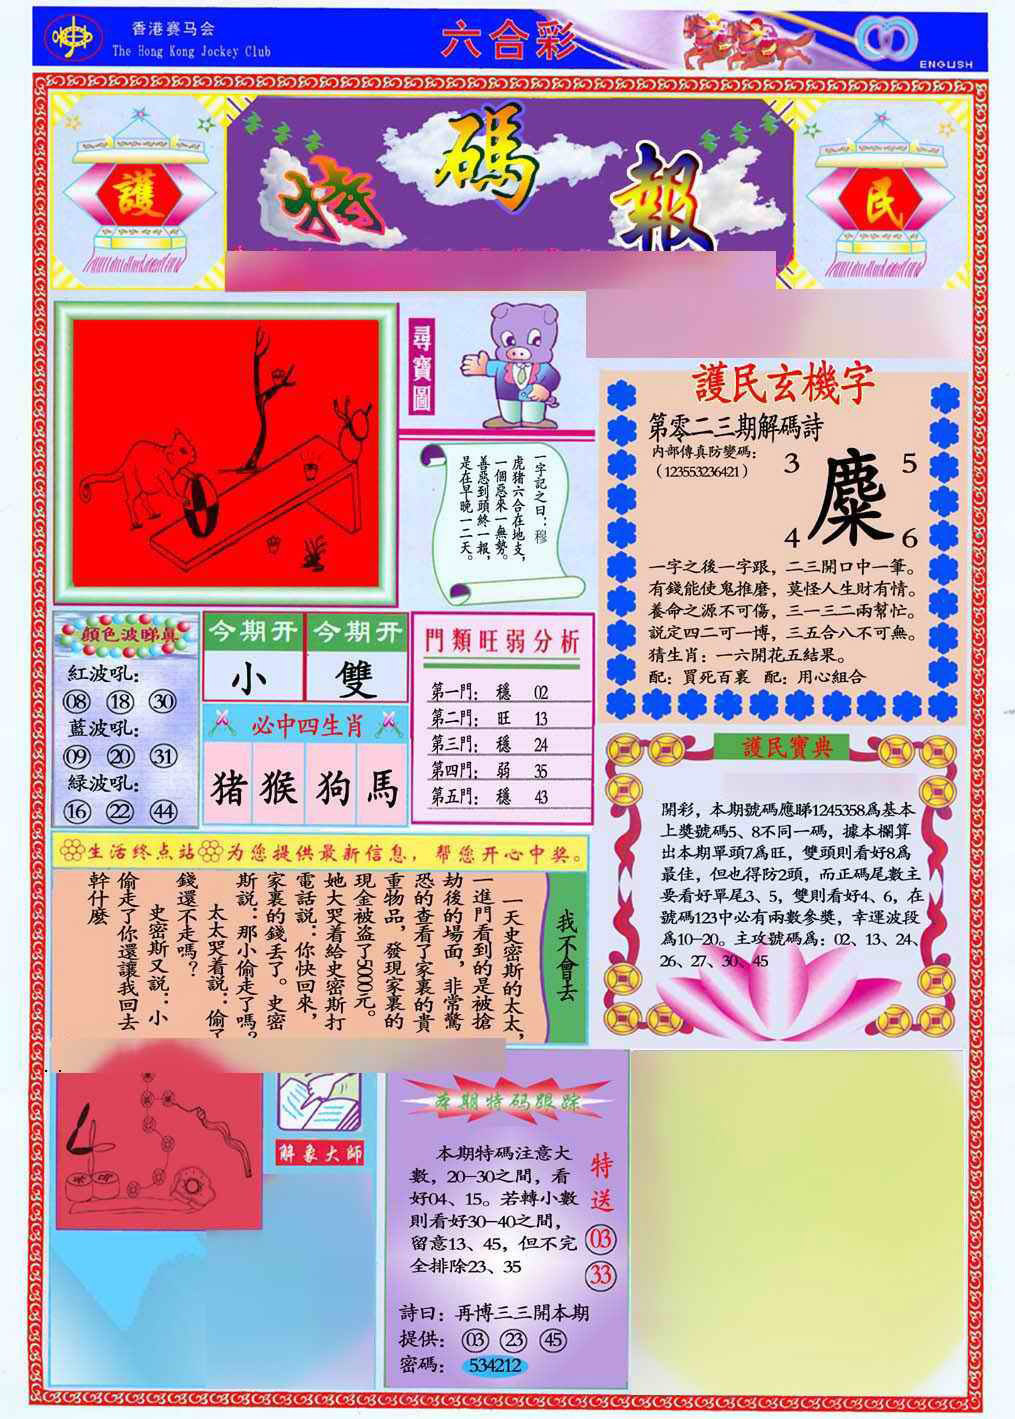 香港赛马会
The Hong Kong Jockey Club
六合彩
ENGLISH
護
特碼報
民
尋寶圖
一字記之曰：穆
虎猪六合在地支，
一個惡來一無勢。
善惡到頭終一報，
是在早晚一二天。
護民玄機字
第零二三期解碼詩
内部傳真防變碼：
（123553236421）
3
5
麋
4
6
一字之後一字跟，二三開口中一筆。
有錢能使鬼推磨，莫怪人生財有情。
養命之源不可傷，三一三二兩幫忙。
説定四二可一博，三五合八不可無。
猜生肖：一六開花五結果。
配：買死百裏 配：用心組合
顔色波睇真
紅波吼：
08 18 30
藍波吼：
09 20 31
緑波吼：
16 22 44
今期开 今期开
小 雙
必中四生肖
猪 猴 狗 馬
門類旺弱分析
第一門： 穩 02
第二門： 旺 13
第三門： 穩 24
第四門： 弱 35
第五門： 穩 43
護民寶典
開彩，本期號碼應睇1245358爲基本
上獎號碼5、8不同一碼，據本欄算
出本期單頭7爲旺，雙頭則看好8爲
最佳，但也得防2頭，而正碼尾數主
要看好單尾3、5，雙則看好4、6，在
號碼123中必有兩數參獎，幸運波段
爲10-20。主攻號碼爲：02、13、24、
26、27、30、45
生活终点站 为您提供最新信息，帮您开心中奖。
我不會去
一天史密斯的太太，
一進門看到的是被搶
劫後的場面，非常驚
恐的查看了家裏的貴
重物品，發現家裏的
現金被盗了5000元。
她大哭着給史密斯打
電話説：你快回來，
家裏的錢丟了。史密
斯説：那小偷走了嗎？
太太哭着説：偷了
錢還不走嗎？
史密斯又説：小
偷走了你還讓我回去
幹什麽
解象大師
本期特码跟踪
本期特碼注意大
數，20-30之間，看
好04、15。若轉小數
則看好30-40之間，
留意13、45，但不完
全排除23、35
特送
03
33
詩曰：再博三三開本期
提供： 03 23 45
密碼： 534212